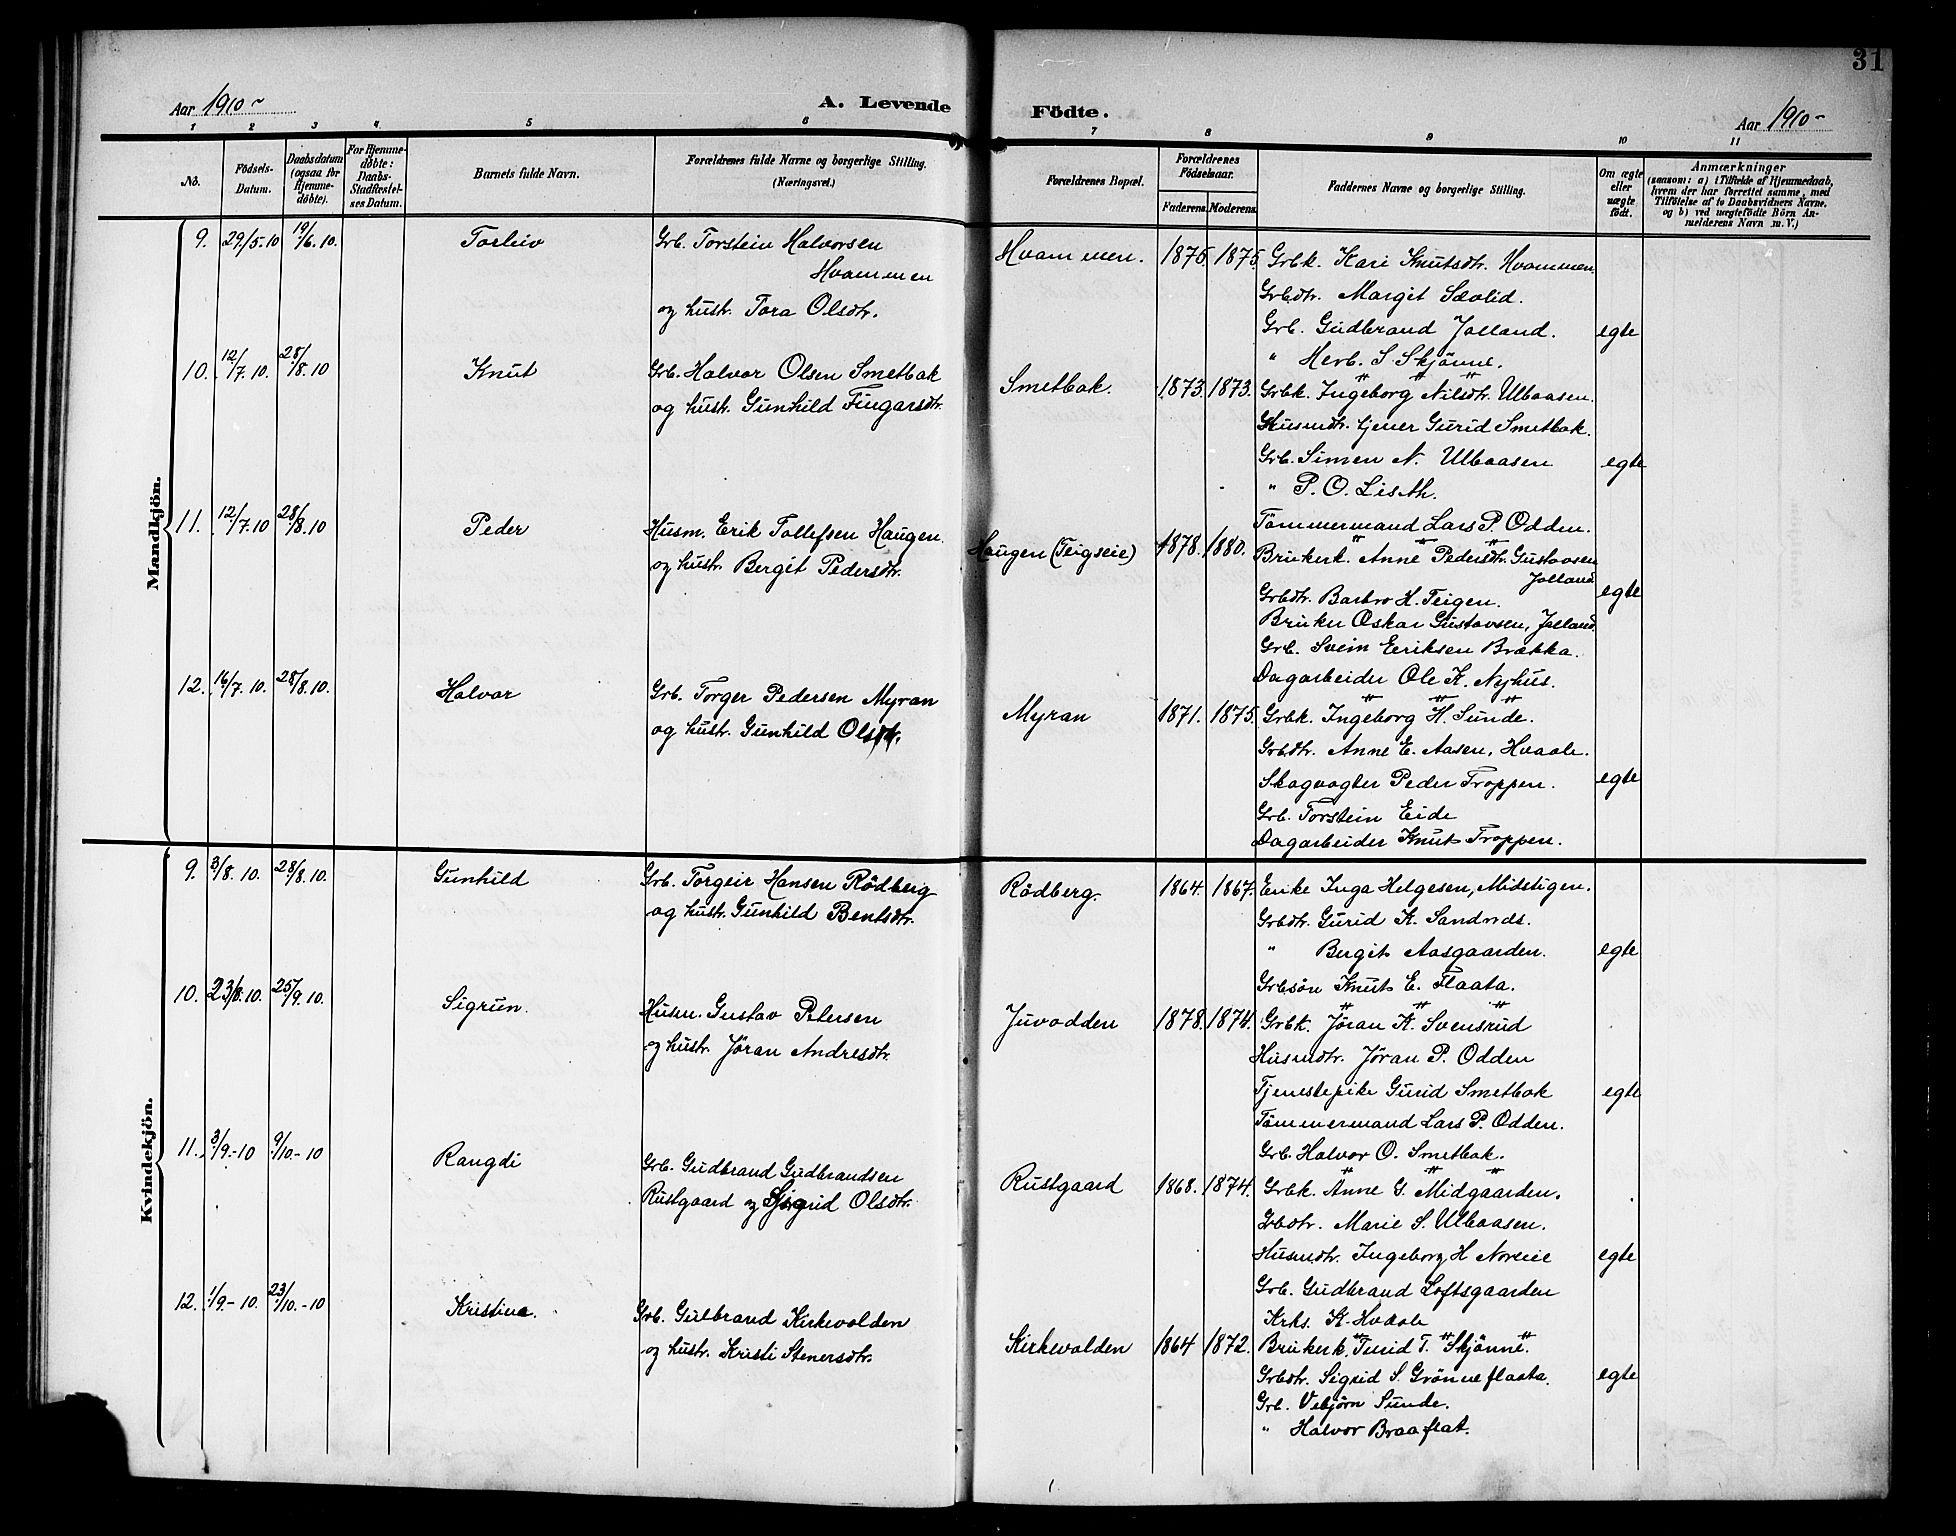 31
Aar 1910 A. Levende Födte. Aar 1910
1 2 3 4 5 6 7 8 9 10 11
No. Födsels-Datum. Daabsdatum (ogsaa for Hjemmedöbte). For Hjemmedöbte: Daabs-Stadfæstelses Datum. Barnets fulde Navn. Forældrenes fulde Navne og borgerlige Stilling. (Næringsvei.) Forældrenes Bopæl. Forældrenes Födselsaar. Faderens. Moderens. Faddernes Navne og borgerlige Stilling. Om ægte eller uægte födt. Anmærkninger (saasom: a) i Tilfælde af Hjemmedaab, hvem der har forrettet samme, med Tilföielse af to Daabsvidners Navne, og b) ved uægtefödte Börn Anmelderens Navn m. V.)
Mandkjön.
9. 29/5.10 19/6.10. Torleiv Grb. Torstein Halvorsen Hvammen. 1875. 1875. Grbk. Kari Knutsdtr. Hvammen.
Hvammen Grbdtr. Margit Sævlid.
og hustr. Tora Olsdtr. Grb. Gudbrand Jolland. egte
" Herb. S. Skjönne.
10. 12/7.10. 28/8.10 Knut Grb. Halvor Olsen Smetbak Smetbak. 1873. 1873. Grbk. Ingeborg Nilsdtr. Ulbaasen.
og hustr. Gunhild Fingarsdtr. Husmdtr. tjener Gurid Smetbak.
Grb. Simen N. Ulbaasen egte
" P. O. Liseth.
Tömmermand Lars P. Odden.
11. 12/7.10 28/8.10 Peder Husm. Erik Tollefsen Haugen Haugen (Teigseie) 1878. 1880. Brukerk. Anne Pedersdtr. Gustavsen
Jolland
og hustr. Bergit Pedersdtr. Grbdtr. Barbro H. Teigen. egte
Bruker Oskar Gustavsen, Jolland.
Grb. Svein Eriksen Brække.
Dagarbeider Ole K. Nyhus.
12. 16/7.10. 28/8.10. Halvor Grb. Torger Pedersen Myran Myran 1871. 1875. Grbk. Ingeborg H. Sunde.
og hustr. Gunhild Olsdtr. Grbdtr. Anne E. Aasen, Hvaale.
Skogvogter Peder Troppen. egte
Grb. Torstein Eide
Dagarbeider Knut Troppen.
Kvindekjön.
9. 3/8.10. 28/8.10. Gunhild Grb. Torgeir Hansen Rödberg Rödberg. 1864. 1867. Enke Inga Helgesen, Midstigen.
og hustr. Gunhild Bentsdtr. Grbdtr. Gurid K. Sandnes.
" Bergit Aasgaarden. egte
Grbsön Knut E. Flaata.
10. 23/8.10. 25/9.10. Sigrun. Husm. Gustav Petersen Juvodden 1878. 1874. Grbk. Jöran K. Svensrud
og hustr. Jöran Andresdtr. Husmdtr. Jöran P. Odden
Tjenestepike Gurid Smetbak egte
Tömmermand Lars P. Odden.
Grb. Halvor O. Smetbak.
11. 3/9.-10 9/10.-10 Rangdi Grb. Gudbrand Gudbrandsen Rustgaard 1868. 1874. Grbk. Anne G. Midgaarden.
Rustgaard og Sigrid Olsdtr. Grbdtr. Marie S. Ulbaasen.
Husmdtr. Ingeborg H. Noreie egte
Grb. Gudbrand Loftsgaarden
Krks. K. Hvaale
12. 1/9.-10. 23/10.-10 Kristine. Grb. Gulbrand Kirkevolden Kirkevolden 1864 1872. Brukerk. Turid T. Skjönne.
og hustr. Kristi Stenersdtr. Grbdtr. Sigrid S. Grönneflaata. egte
Grb. Vebjörn Sunde.
" Halvor Braaflat.